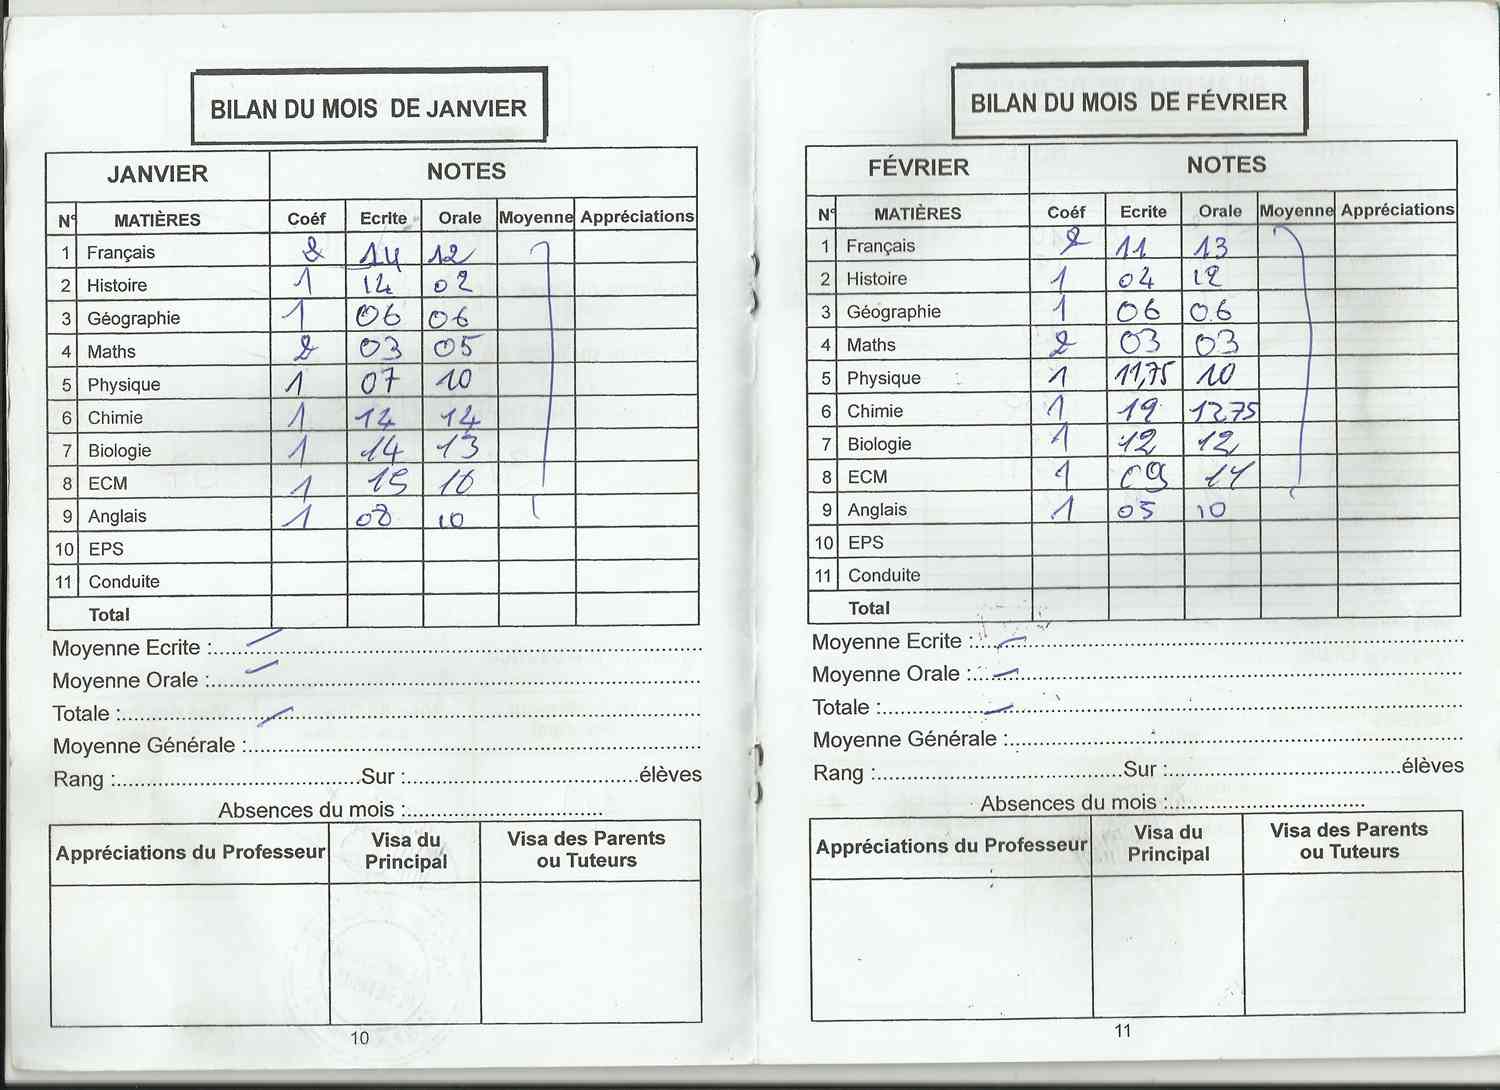 BILAN DU MOIS DE JANVIER
JANVIER NOTES
N° MATIÈRES Coéf Ecrite Orale Moyenne Appréciations
1 Français 2 14 12
2 Histoire 1 12 02
3 Géographie 1 06 06
4 Maths 2 03 05
5 Physique 1 07 10
6 Chimie 1 14
7 Biologie 1 14 13
8 ECM 1 15 16
9 Anglais 1 08 10
10 EPS
11 Conduite
Total
Moyenne Ecrite :
Moyenne Orale :
Totale :
Moyenne Générale :
Rang : Sur : élèves
Absences du mois :
Appréciations du Professeur Visa du Principal Visa des Parents ou Tuteurs
10
BILAN DU MOIS DE FÉVRIER
FÉVRIER NOTES
N° MATIÈRES Coéf Ecrite Orale Moyenne Appréciations
1 Français 2 11 13
2 Histoire 1 04 12
3 Géographie 1 06 06
4 Maths 2 03 03
5 Physique 1 11,75 10
6 Chimie 1 19 12,75
7 Biologie 1 12 12
8 ECM 1 09
9 Anglais 1 05 10
10 EPS
11 Conduite
Total
Moyenne Ecrite :
Moyenne Orale :
Totale :
Moyenne Générale :
Rang : Sur : élèves
Absences du mois :
Appréciations du Professeur Visa du Principal Visa des Parents ou Tuteurs
11